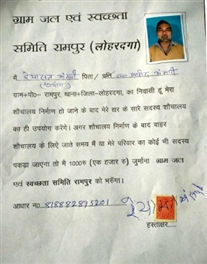 ग्राम जल एवं स्वच्छता
समिति रामपुर (लोहरदगा)
मै पिता/ प्रति
ग्राम+पो०- रामपुर, थाना+जिला-लोहरदगा, का निवासी हूं मेरा
शौचालय निर्माण हो जाने के बाद मेरे घर के सारे सदस्य शौचालय
का ही उपयोग करेंगे। अगर शौचालय निर्माण के बाद बाहर
शौचालय के लिए जाते समय मैं या मेरे परिवार का कोई भी सदस्य
पकड़ा जाएगा तो मै 1000रु (एक हजार रु) जुर्माना ग्राम जल
एवं स्वच्छता समिति रामपुर को भरूँगा।
आधार नो.
हस्ताक्षर